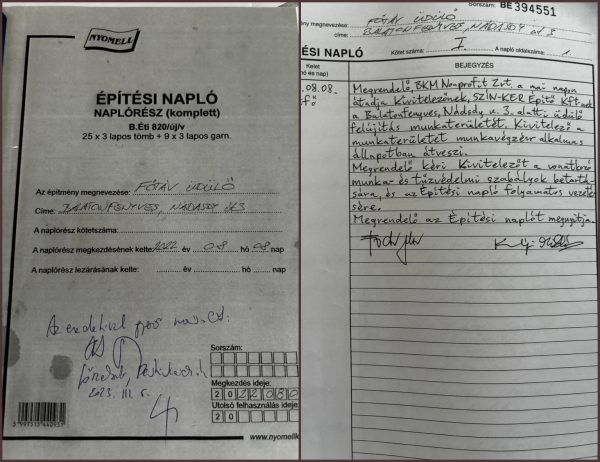 NYOMELL
ÉPÍTÉSI NAPLÓ
NAPLÓRÉSZ (komplett)
B.Éti 820/új/v
25 x 3 lapos tömb + 9 x 3 lapos garn.
Az építmény megnevezése: FŐTÁV ÜDÜLŐ
Címe: BALATONFENYVES, NÁDASDY U.3
A naplórész kötetszáma:
A naplórész megkezdésének kelte: 2022 év 08 hó 08 nap
A naplórész lezárásának kelte: év hó nap
Az eredetivel
2023. III. 6.
Sorszám:
Megkezdés ideje:
20 22 080
Utolsó felhasználás ideje:
20
5997513440951
www.nyomellk
Sorszám: BE394551
ítmény megnevezése: FŐTÁV ÜDÜLŐ
címe: BALATONFENYVES, NÁDASDY U. 3
ÉSI NAPLÓ
Kötet száma: I. A napló oldalszáma: 1.
Kelet
hó és nap)
BEJEGYZÉS
.08.08.
Megrendelő, BKM Nonprofit Zrt. a mai napon
átadja Kivitelezőnek, SZIN-KER Építő Kft-nek
a Balatonfenyves, Nádasdy u. 3. alatti üdülő
felújítás munkaterületét. Kivitelező a
munkaterületet munkavégzésre alkalmas
állapotban átveszi.
Megrendelő kéri Kivitelezőt a vonatkozó
munka- és tűzvédelmi szabályok betartá-
sára, és az Építési napló folyamatos vezeté-
sére.
Megrendelő az Építési naplót megnyitja.